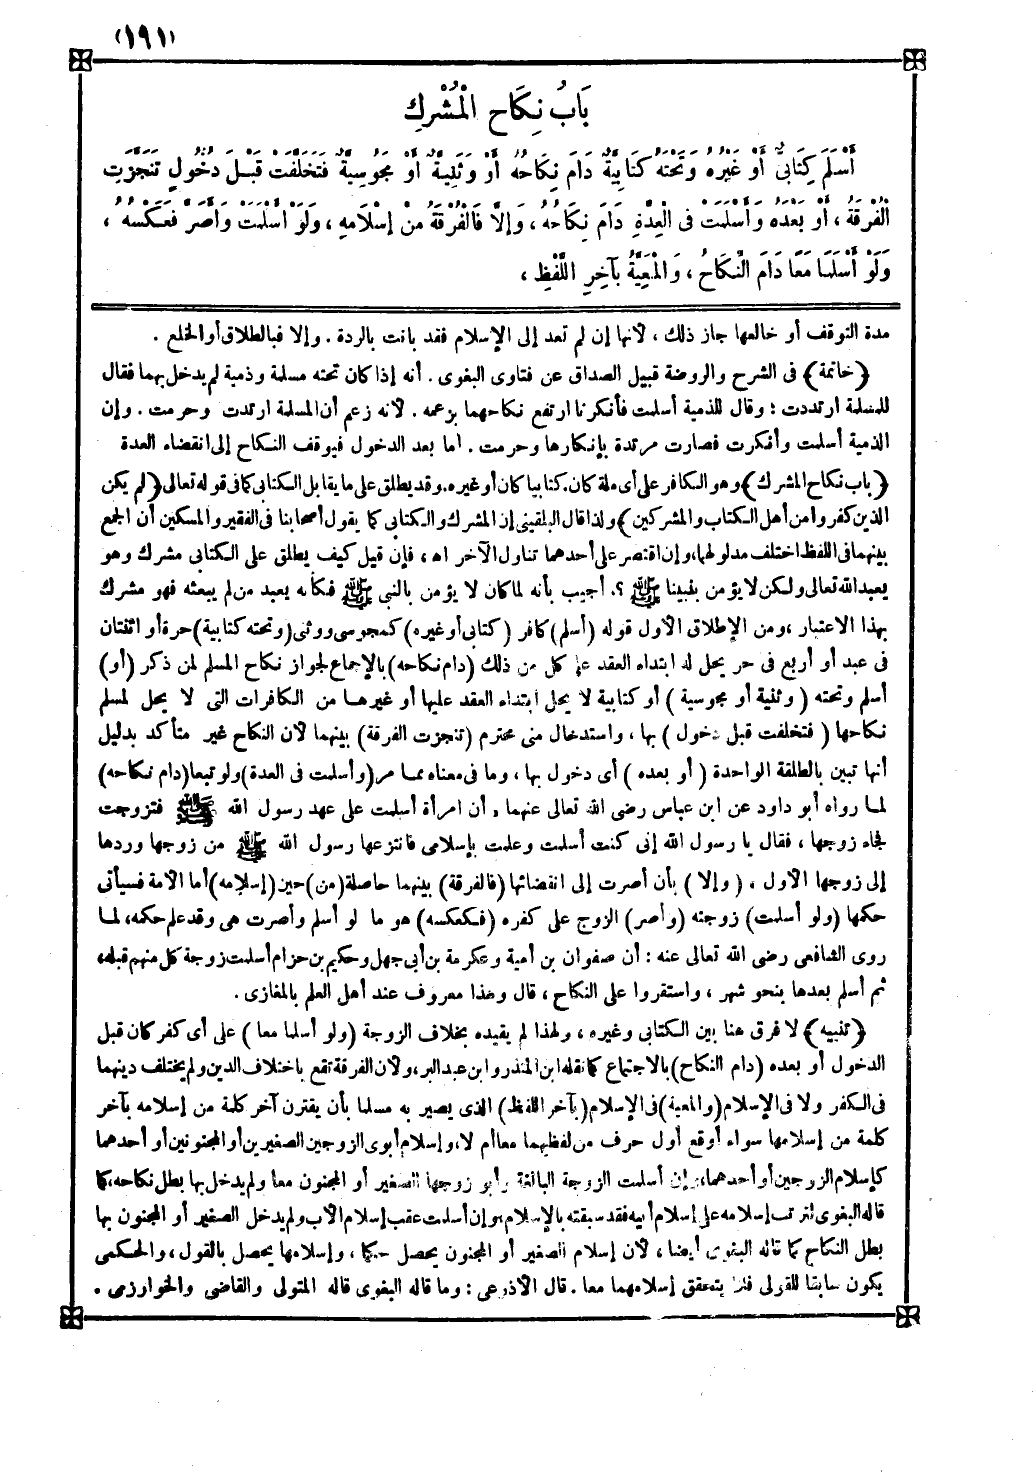 (١٩١)
بَابُ نِكَاحِ الْمُشْرِكِ
أَسْلَمَ كِتَابِىٌّ أَوْ غَيْرُهُ وَتَحْتَهُ كِتَابِيَّةٌ دَامَ نِكَاحُهُ أَوْ وَثَنِيَّةٌ أَوْ مَجُوسِيَّةٌ فَتَخَلَّفَتْ قَبْلَ دُخُولٍ تَنَجَّزَتِ
الْفُرْقَةُ ، أَوْ بَعْدَهُ وَأَسْلَمَتْ فِى الْعِدَّةِ دَامَ نِكَاحُهُ ، وَإِلَّا فَالْفُرْقَةُ مِنْ إِسْلَامِهِ ، وَلَوْ أَسْلَمَتْ وَأَصَرَّ فَعَكْسُهُ ،
وَلَوْ أَسْلَمَا مَعًا دَامَ النِّكَاحُ ، وَالْمَعِيَّةُ بِآخِرِ اللَّفْظِ ،
مدة التوقف أو خالعها جاز ذلك ، لأنها إن لم تعد إلى الإسلام فقد بانت بالردة . وإلا فبالطلاق أو الخلع .
﴿خاتمة﴾ فى الشرح والروضة قبيل الصداق عن فتاوى البغوى . أنه إذا كان تحته مسلمة وذمية لم يدخل بهما فقال
للمسلمة ارتددت : وقال للذمية أسلمت فأنكرتا ارتفع نكاحهما بزعمه . لأنه زعم أن المسلمة ارتدت وحرمت . وإن
الذمية أسلمت وأنكرت فصارت مرتدة بإنكارها وحرمت . أما بعد الدخول فيوقف النكاح إلى انقضاء العدة
﴿باب نكاح المشرك﴾ وهو الكافر على أى ملة كان. كتابيا كان أو غيره. وقد يطلق على ما يقابل الكتابى كما فى قوله تعالى ﴿لم يكن
الذين كفروا من أهل الكتاب والمشركين﴾ ولذا قال البلقينى إن المشرك والكتابى كما يقول أصحابنا فى الفقير والمسكين أن الجمع
بينهما فى اللفظ اختلف مدلولها، وإن اقتصر على أحدهما تناول الآخر اه ، فإن قيل كيف يطلق على الكتابى مشرك وهو
يعبد الله تعالى ولكن لا يؤمن بنبينا ﷺ ؟. أجيب بأنه لما كان لا يؤمن بالنبى ﷺ فكأنه يعبد من لم يبعثه فهو مشرك
بهذا الاعتبار ، ومن الإطلاق الأول قوله (أسلم) كافر (كتابى أو غيره) كمجوسى ووثنى (وتحته كتابية) حرة أو اثنتان
فى عبد أو أربع فى حر يحل له ابتداء العقد على كل من ذلك (دام نكاحه) بالإجماع لجواز نكاح المسلم لمن ذكر (أو)
أسلم وتحته ( وثنية أو مجوسية ) أو كتابية لا يحل ابتداء العقد عليها أو غيرها من الكافرات التى لا يحل لمسلم
نكاحها ( فتخلفت قبل دخول ) بها ، واستدخال منى محترم (تنجزت الفرقة) بينهما لأن النكاح غير متأكد بدليل
أنها تبين بالطلقة الواحدة ( أو بعده ) أى دخول بها ، وما فى معناه مما مر (وأسلمت فى العدة) ولو تبعا (دام نكاحه)
لما رواه أبو داود عن ابن عباس رضى الله تعالى عنهما . أن امرأة أسلمت على عهد رسول الله ﷺ فتزوجت
فجاء زوجها ، فقال يا رسول الله إنى كنت أسلمت وعلمت بإسلامى فانتزعها رسول الله ﷺ من زوجها وردها
إلى زوجها الأول ، ( وإلا ) بأن أصرت إلى انقضائها (فالفرقة) بينهما حاصلة (من) حين (إسلامه) أما الأمة فسيأتى
حكمها (ولو أسلمت) زوجته (وأصر) الزوج على كفره (فكعكسه) هو ما لو أسلم وأصرت هى وقد علم حكمه، لما
روى الشافعى رضى الله تعالى عنه : أن صفوان بن أمية وعكرمة بن أبى جهل وحكيم بن حزام أسلمت زوجة كل منهم قبله
ثم أسلم بعدها بنحو شهر ، واستقروا على النكاح ، قال وهذا معروف عند أهل العلم بالمغازى .
﴿تنبيه﴾ لا فرق هنا بين الكتابى وغيره ، ولهذا لم يقيده بخلاف الزوجة (ولو أسلما معا ) على أى كفر كان قبل
الدخول أو بعده (دام النكاح) بالاجتماع كما نقله ابن المنذر وابن عبد البر، ولأن الفرقة تقع باختلاف الدين ولم يختلف دينهما
فى الكفر ولا فى الإسلام (والمعية) فى الإسلام (بآخر اللفظ) الذى يصير به مسلما بأن يقترن آخر كلمة من إسلامه بآخر
كلمة من إسلامها سواء أوقع أول حرف من لفظيهما معا أم لا، وإسلام أبوى الزوجين الصغيرين أو المجنونين أو أحدهما
كإسلام الزوجين أو أحدهما، وإن أسلمت الزوجة البالغة وأبو زوجها الصغير أو المجنون معا ولم يدخل بها بطل نكاحه، كما
قاله البغوى لترتب إسلامه على إسلام أبيه فقد سبقته بالإسلام، وإن أسلمت عقب إسلام الأب ولم يدخل الصغير أو المجنون بها
بطل النكاح كما قاله البغوى أيضا ، لأن إسلام الصغير أو المجنون يحصل حكما ، وإسلامها يحصل بالقول، والحكمى
يكون سابقا للقولى فلا يتحقق إسلامهما معا . قال الأذرعى : وما قاله البغوى قاله المتولى والقاضى والخوارزمى .